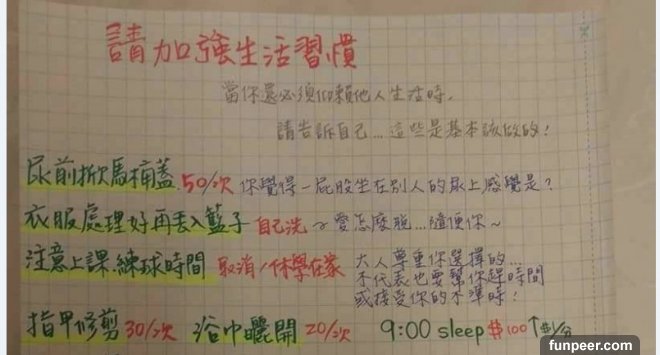 請加強生活習慣
當你還必須仰賴他人生活時,
請告訴自己...這些是基本該做的!
尿前掀馬桶蓋 50/次 你覺得一屁股坐在別人的尿上感覺是?
衣服處理好再丟入籃子 自己洗 ~愛怎麼脫...隨便你~
注意上課.練球時間 取消/休學在家 大人尊重你選擇的...
不代表也要幫你趕時間
或接受你的不準時!
指甲修剪 30/次 浴巾曬開 20/次 9:00 sleep $100↑$1/分
funpeer.com